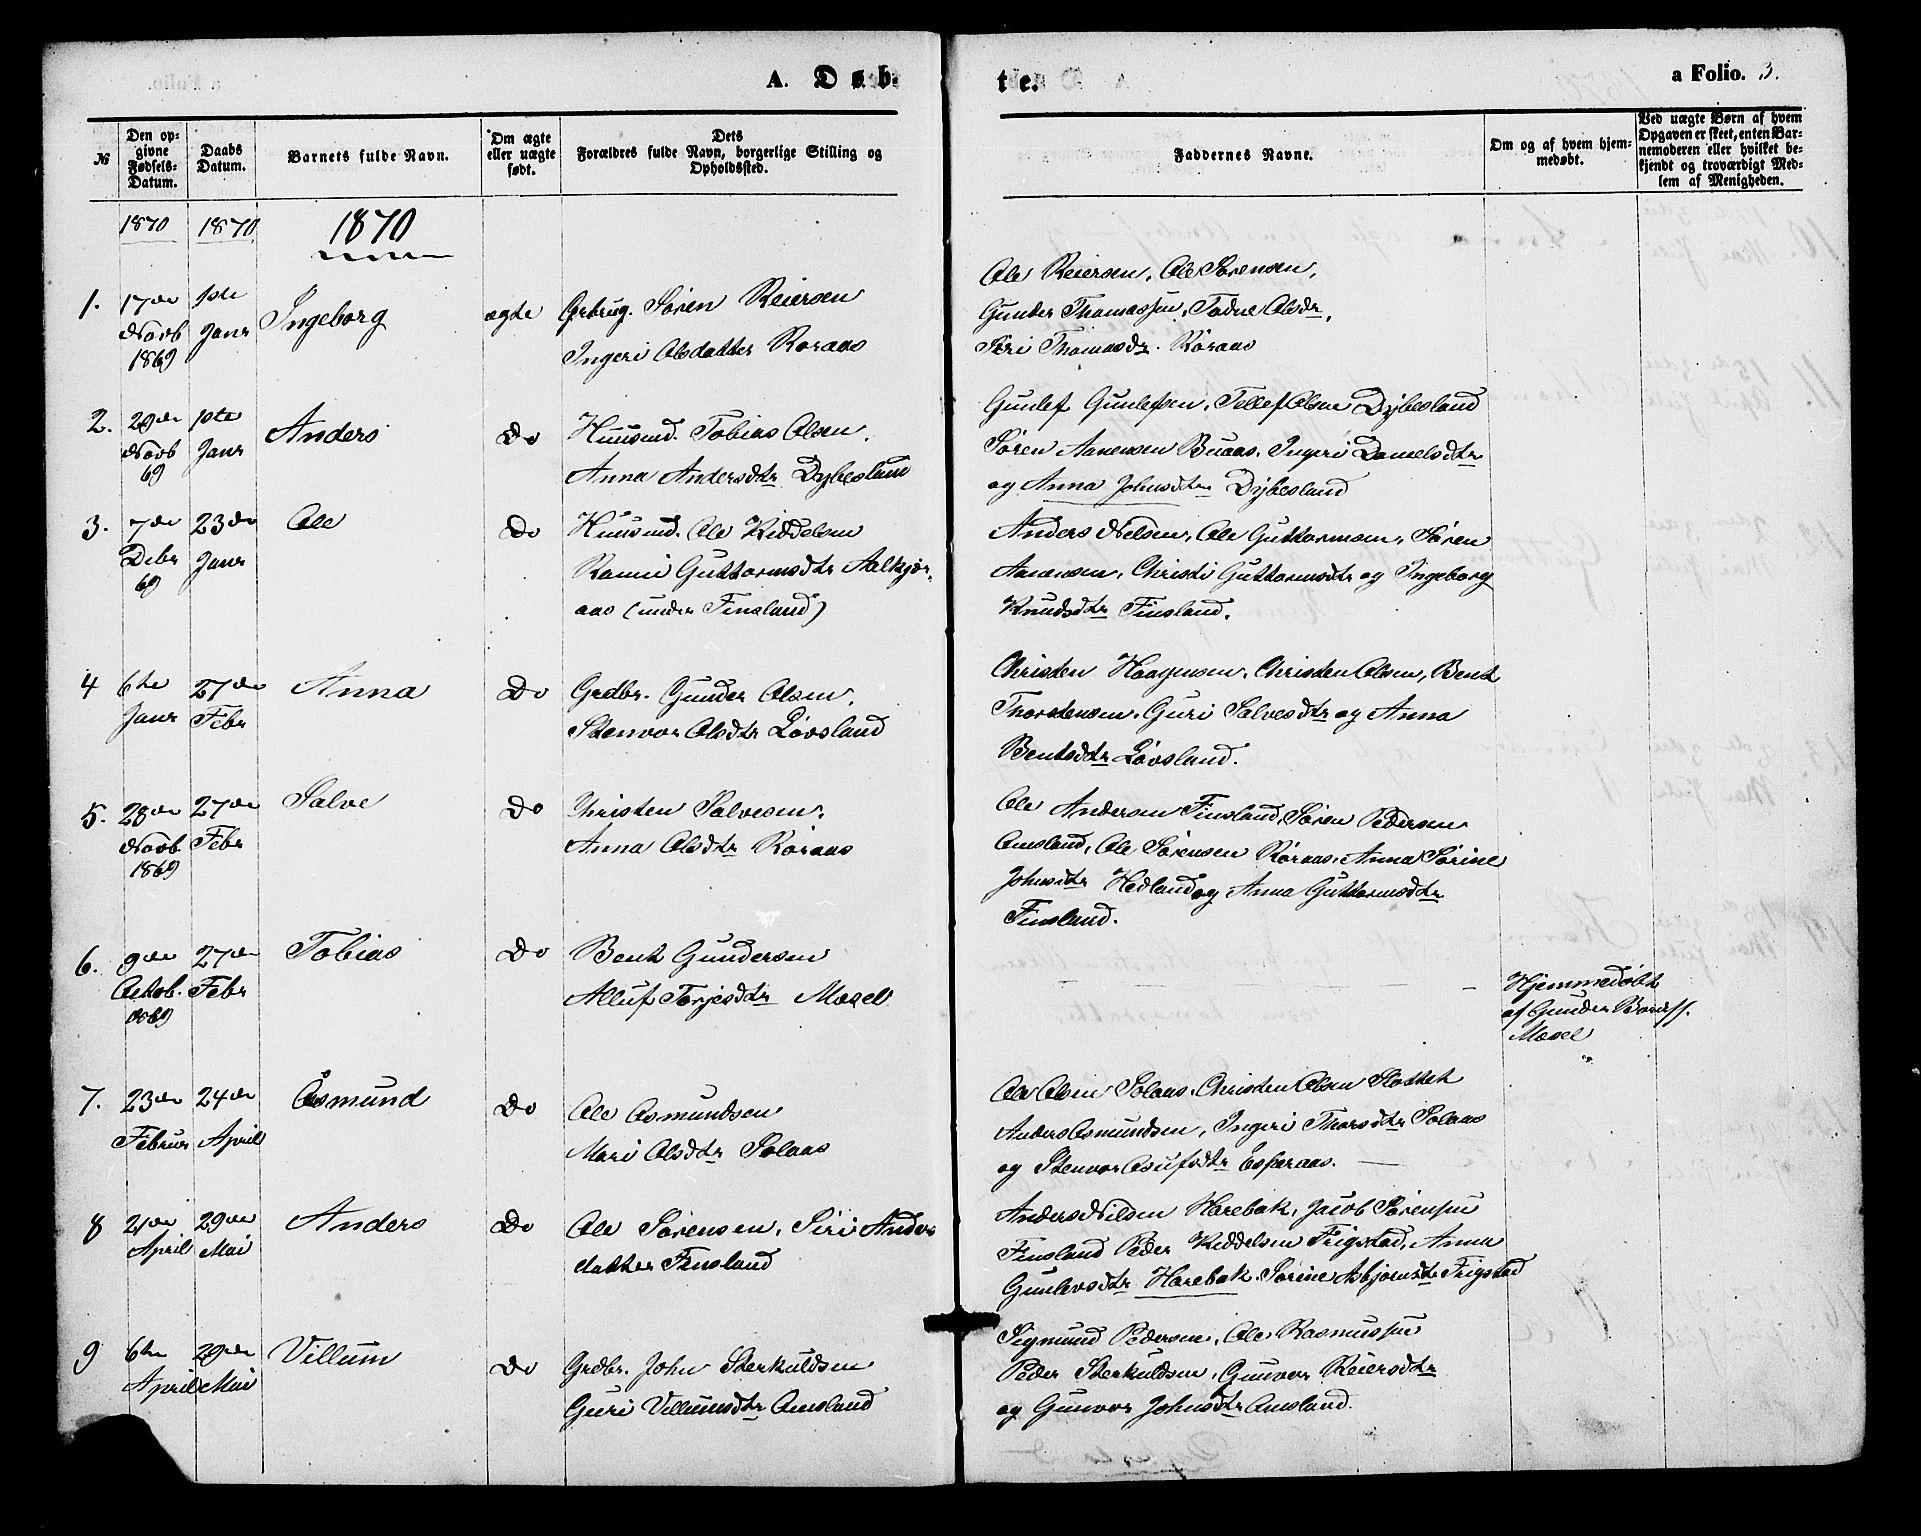 A. Døb-
te.
a Folio. 3.
№
Den op-
givne
Fødsels-
Datum.
Daabs
Datum.
Barnets fulde Navn.
Om ægte
eller uægte
født.
Dets
Forældres fulde Navn, borgerlige Stilling og
Opholdssted.
Faddernes Navne.
Om og af hvem hjem-
medøbt.
Ved uægte Børn af hvem
Opgaven er skeet, enten Bar-
nemoderen eller hvilket be-
kjendt og troværdigt Med-
lem af Menigheden.
1870
1870
1870
1.
17de
Novb
1869
1ste
Janr
Ingeborg
ægte
Grbrug. Søren Reiersen
Ingeri Olsdatter Røraas
Ole Reiersen, Ole Sørensen,
Gunder Thomassen, Todne Olsdr,
Siri Thomasdr. Røraas
2.
29de
Novb
69
1ste
Janr
Anders
Do
Huusmd. Tobias Olsen,
Anna Andersdtr Dybesland
Gunlef Gunlefsen, Tellef Olsen Dybesland
Søren Aanensen Buaas, Ingeri Danielsdtr
og Anna Johnsdtr Dybesland
3.
7de
Debr
69
23de
Janr
Ole
Do
Huusmd. Ole Kiddelsen
Rannei Guttormsdtr Aalkjør-
aas (under Finsland)
Anders Nilsen, Ole Guttormsen, Søren
Aanensen, Christi Guttormsdtr og Ingeborg
Knudsdtr Finsland.
4
6te
Janr
27de
Febr
Anna
Do
Grdbr. Gunder Olsen,
Stenvor Olsdtr Løvsland
Christen Haagensen, Christen Olsen, Bent
Thorstensen, Guri Salvesdtr og Anna
Bentsdtr Løvsland.
5.
28de
Novb
1869
27de
Febr
Salve
Do
Christen Salvesen,
Anna Olsdtr Røraas
Ole Andersen Finsland, Søren Pedersen
Omsland, Ole Sørensen Røraas, Anna Sørine
Johnsdtr Hedland og Anna Guttormsdtr
Finsland.
6.
9de
Octob.
1869
27de
Febr
Tobias
Do
Bent Gundersen
Alluf Torjesdtr Mosel
Hjemmedøbt
af Gunder
Mosel
7.
23de
Februr
24de
April
Åsmund
Do
Ole Osmundsen
Mari Olsdtr Solaas
Ole Olsen Solaas, Christen Olsen Slottet
Anders Osmundsen, Ingeri Thorsdtr Solaas
og Stenvor Osufsdtr Esperaas.
8
21de
April
29de
Mai
Anders
Do
Ole Sørensen, Siri Anders
datter Finsland
Anders Nilsen Horebak, Jacob Sørensen
Finsland Peder Kiddelsen Frigstad, Anna
Gunlevsdtr Horebak, Sørine Asbjørnsdtr Frigstad
9
6te
April
29de
Mai
Villum
Do
Grdbr. John Sterkuldsen
Guri Villumsdtr Omsland
Sigmund Pedersen, Ole Rasmussen
Peder Sterkuldsen, Gunvor Reiersdtr
og Gunvor Johnsdtr Omsland.